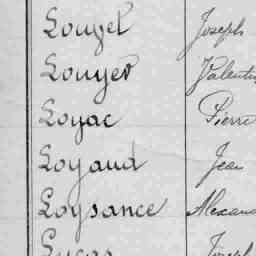 Louzel Joseph
Louyer Valentin
Loyac Pierre
Loyaud Jean
Loysance
Lucas Joseph